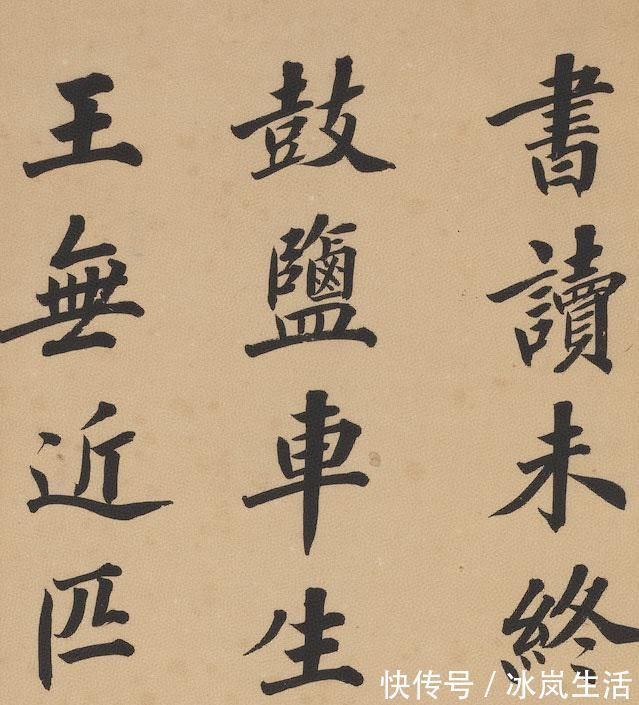 書讀未終
鼓鹽車生
王無近匹
快传号/冰岚生活